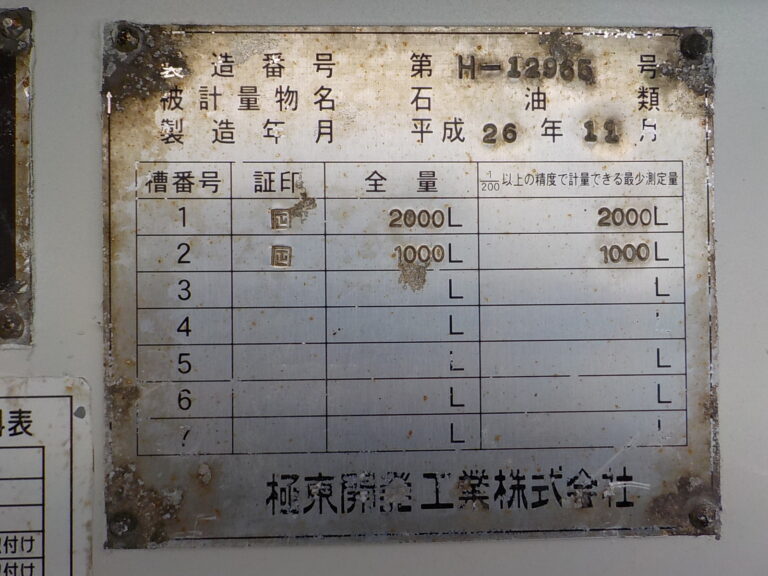 製造番号 第 H-12965 号
被計量物名 石油類
製造年月 平成 26 年 11 月
槽番号 証印 全量 1/200以上の精度で計量できる最少測定量
1 2000L 2000L
2 1000L 1000L
3 L L
4 L
5 L L
6 L L
7 L L
極東開発工業株式会社
表
付け
付け